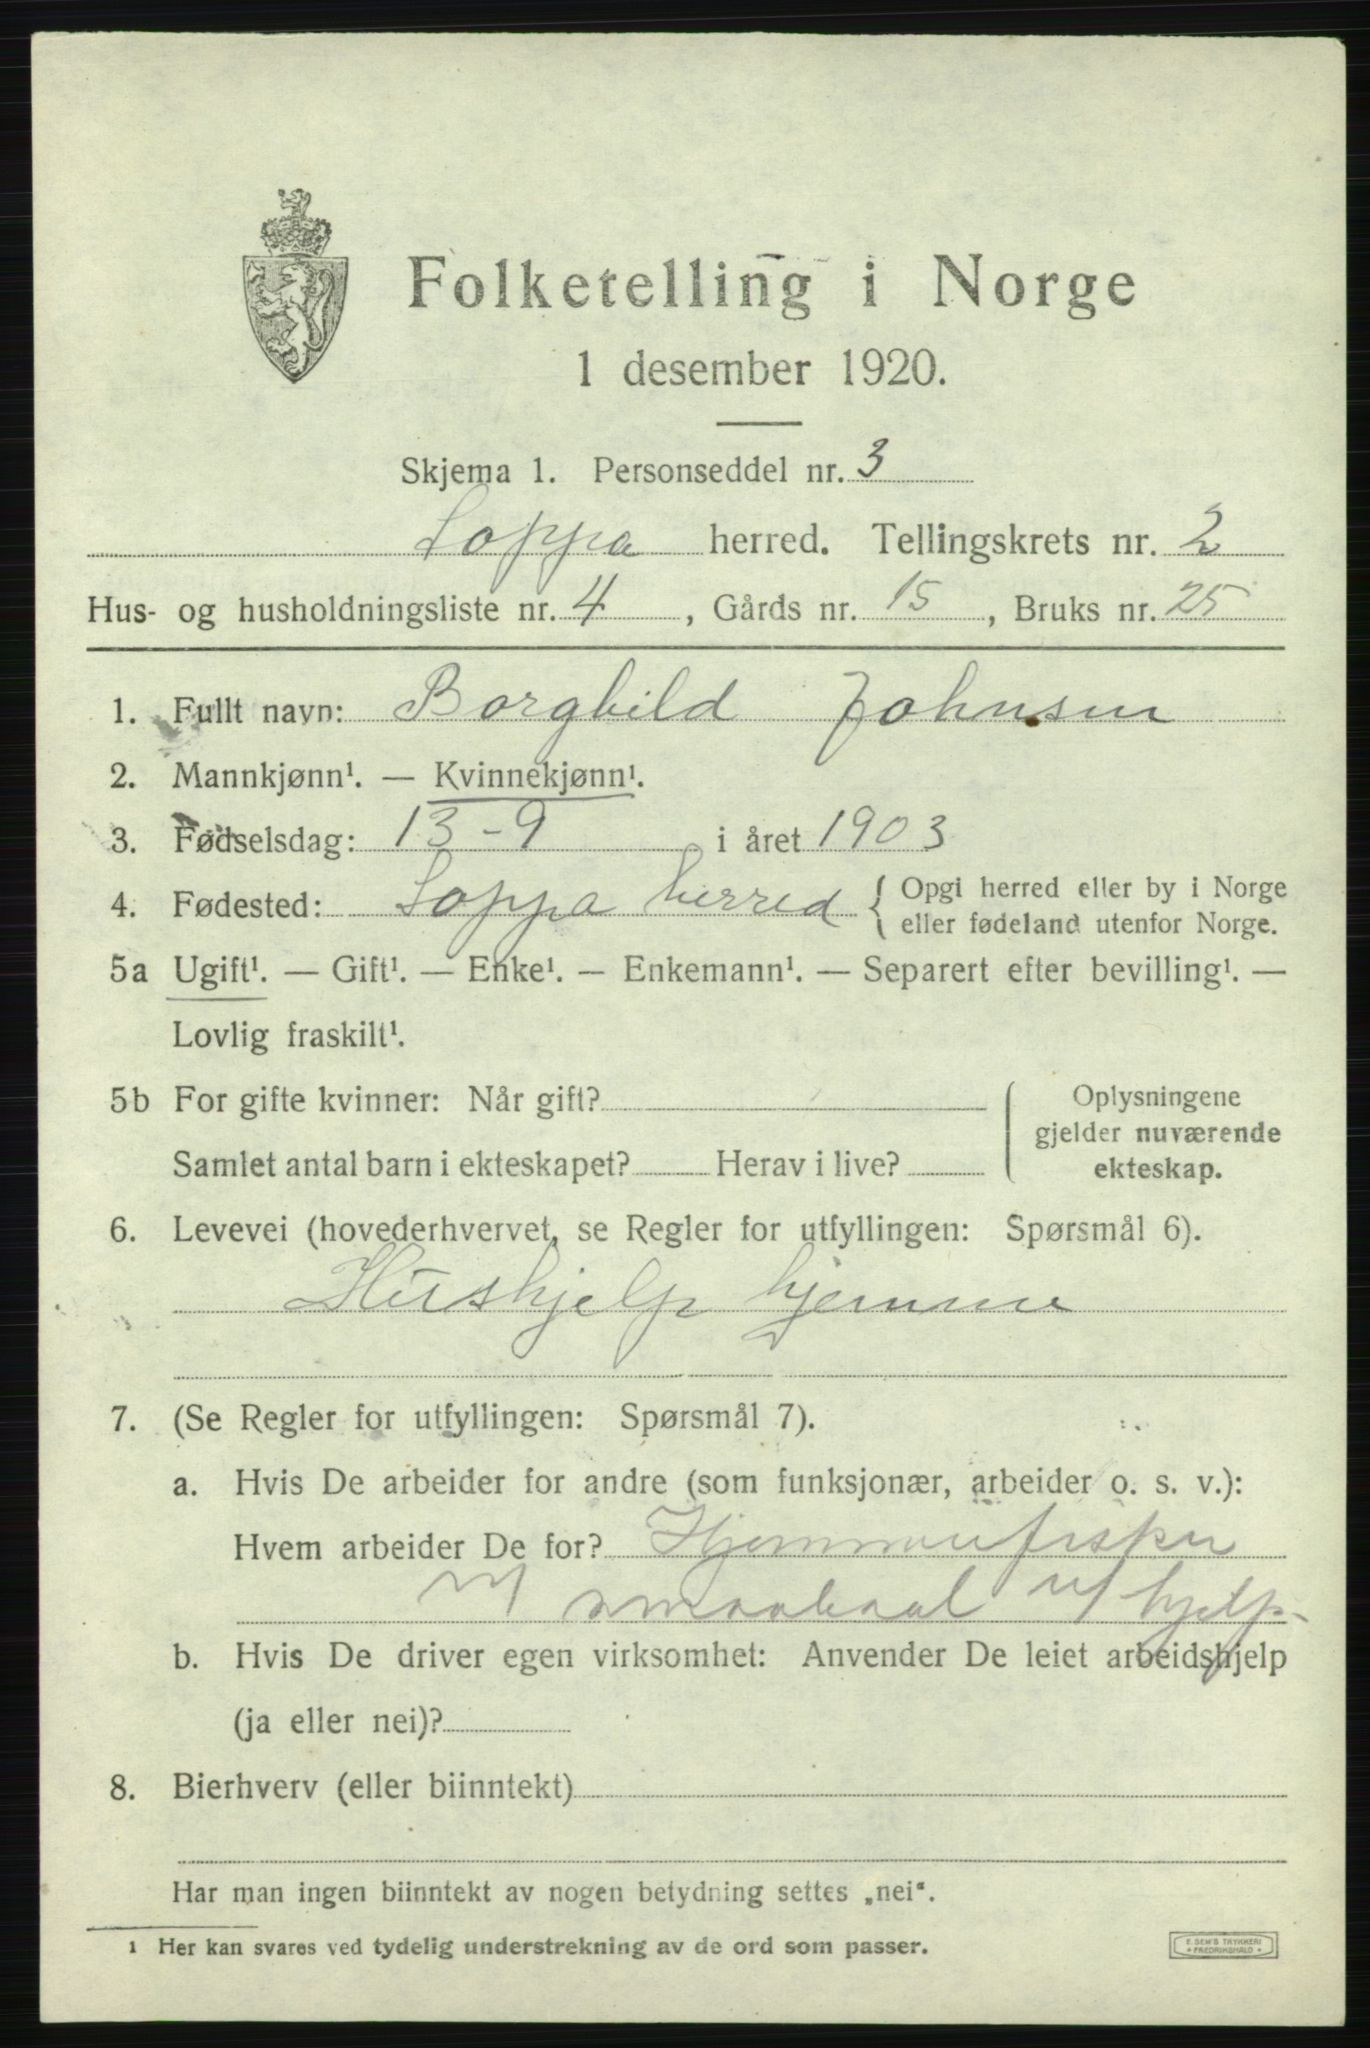 Folketelling i Norge
1 desember 1920.
Skjema 1. Personseddel nr. 3
Loppa herred. Tellingskrets nr. 2
Hus- og husholdningsliste nr. 4, Gårds nr. 15, Bruks nr. 25
1. Fullt navn: Borghild Johnsen
2. Mannkjønn¹. — Kvinnekjønn¹.
3. Fødselsdag: 13-9 i året 1903
4. Fødested: Loppa herred { Opgi herred eller by i Norge
eller fødeland utenfor Norge.
5a Ugift¹. — Gift¹. — Enke¹. — Enkemann¹. — Separert efter bevilling¹. —
Lovlig fraskilt¹.
5b For gifte kvinner: Når gift?
Samlet antal barn i ekteskapet? Herav i live?
Oplysningene
gjelder nuværende
ekteskap.
6. Levevei (hovederhvervet, se Regler for utfyllingen: Spørsmål 6).
Hushjelp hjemme
7. (Se Regler for utfyllingen: Spørsmål 7).
a. Hvis De arbeider for andre (som funksjonær, arbeider o. s. v.):
Hvem arbeider De for? Hjemmefisker
m/ smaabaat u/ hjelp
b. Hvis De driver egen virksomhet: Anvender De leiet arbeidshjelp
(ja eller nei)?
8. Bierhverv (eller biinntekt)
Har man ingen biinntekt av nogen betydning settes „nei“.
1 Her kan svares ved tydelig understrekning av de ord som passer.
E. SEM'S TRYKKERI
FREDRIKSHALD